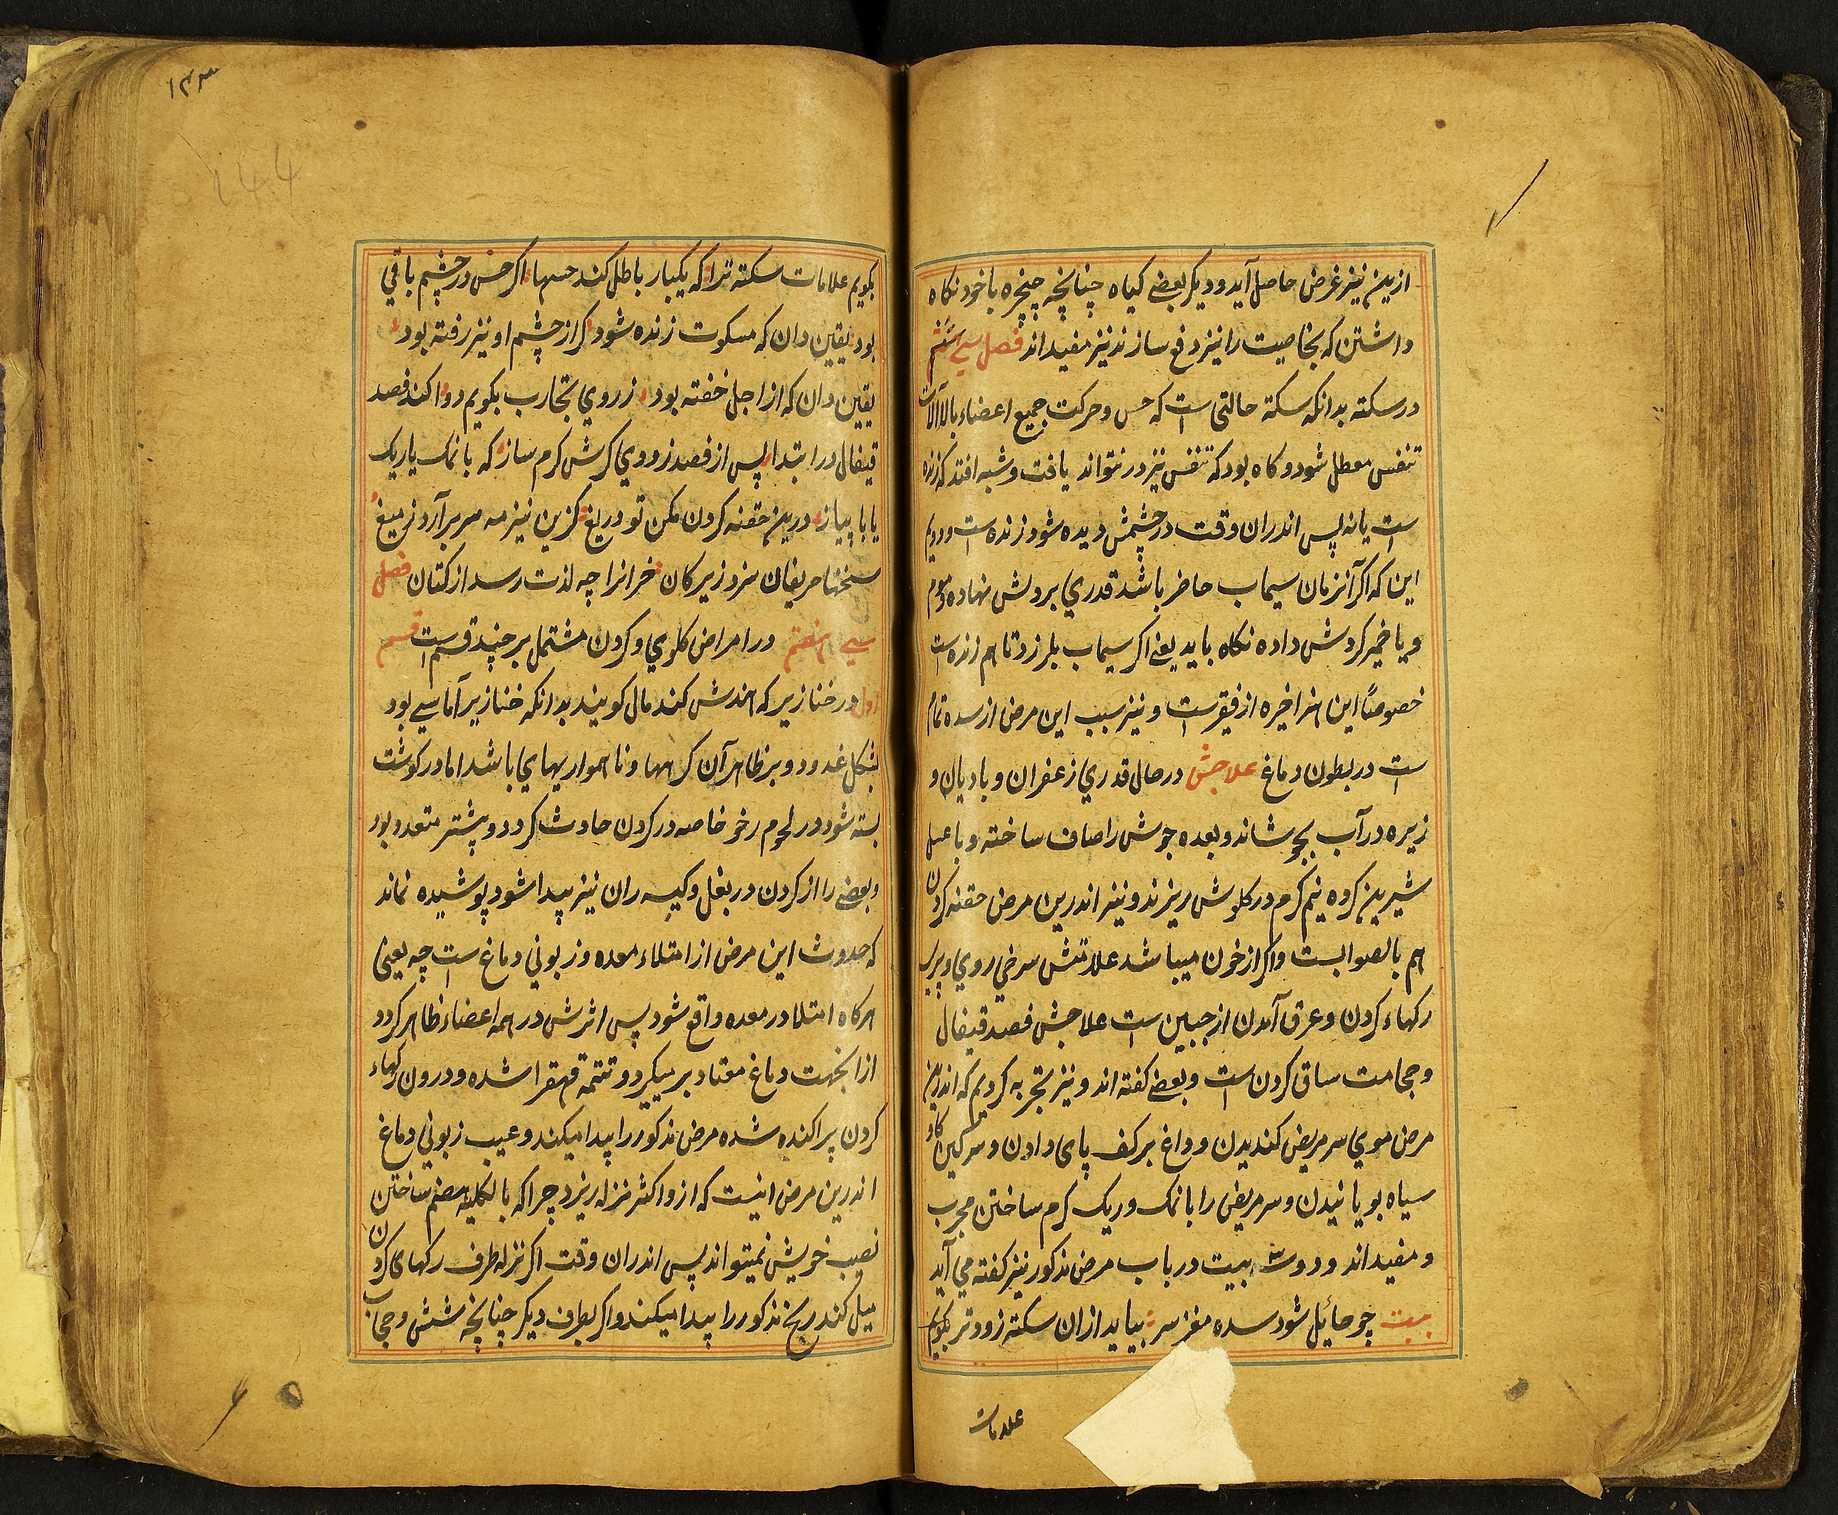 ازین نیز غرض حاصل آید و دیگر بعضے کیاه چنانچه چنچره باخود نکاه
داشتن که بخاصیت را نیز دفع سازند نیز مفیداند فصل سے ششم
در سکته بدانکه سکته حالتی است که حس و حرکت جمیع اعضاء بالا آلات
تنفس معطل شود و کاه بود که تنفس نیز در نتواند یافت و شبه افتد که زنده
است یا نه پس اندران وقت در چشمش دیده شود زنده است ودویم
این که اکر آنزمان سیماب حاضر باشد قدري بر دلش نهاده موم
و یا خمیر کردش داده نکاه باید یعنے اکر سیماب بلرزد تا هم زنده است
خصوصًا این هنر اخیره از فقیرست و نیز سبب این مرض از سده تمام
است در بطون دماغ علاجش در حال قدري زعفران و بادیان و
زیره در آب بجوشاند و بعده جوش را صاف ساخته و با عسل
شیرین کرده نیم کرم در کلوش ریزند و نیز اندرین مرض حقنه کردن
هم بالصوابست و اکر از خون میباشد علامتش سرخي روي و پري
رکهاء کردن و عرق آمدن از جبین است علاجش فصد قیفال
و حجامت ساق کردن است و بعضے کفته اند و نیز تجربه کردیم که اندرین
مرض موي سر مریض کندیدن و داغ بر کف پای دادن و سرکین کاو
سیاه بویانیدن و سر مریض را بانمک و ریک کرم ساختن مجرب
و مفیداند و دوسه بیت در باب مرض مذکور نیز کفته مي آید
بیت چو حائل شود سده مغز سر بیاید ازان سکته زودتر بکویم
علامات
۱۳۳
144
بکویم علامات سکته ترا که یکبار باطل کند حسها اکر حس در چشم باقي
بود یقین دان که مسکوت زنده شود کر از چشم او نیز رفته بود
یقین دان که از اجل خفته بود ز روي تجارب بکویم دوا کند فصد
قیفال در ابتدا پس از فصد زو روي اکرش کرم ساز که بانمک یا ریک
یا با پیاز درین حقنه کردن مکن تو دریغ کزین نیز مه سر برآرد ز میغ
سخنها حریفان سزد زیرکان خرانرا چه لذت رسد از کتان فصل
سے هفتم در امراض کلوي و کردن مشتمل بر چند قسم است قسم
اول در خنازیر که هندش کندمال کویند بدانکه خنازیر آماسے بود
بشکل غدود و بر ظاهر آن کرهها و ناهمواریهاي باشد اما در کوشت
بسته شود در لحوم رخو خاصه در کردن حادث کردد و پیشتر متعدد بود
و بعضے را از کردن در بغل و کیسه ران نیز پیدا شود پوشیده نماند
که حدوث این مرض از امتلاء معده و زبوني دماغ است چه یعني
هرکاه امتلا در معده واقع شود پس اثرش در همه اعضاء ظاهر کردد
از انجهت دماغ معتاد بر میکیرد و تتمه قهقرا شده و درون رکهاء
کردن پراکنده شده مرض مذکور را پیدا میکند و عیب زبوني دماغ
اندرین مرض اینست که ازو اکثر نزله ریزد چرا که بالکلیه هضم ساختن
نصیب خویش نمیتواند پس اندران وقت اکر نزله طرف رکهای کردن
میل کند رنج مذکور را پیدا میکند و اکر بطرف دیکر چنانچه شش و حجاب